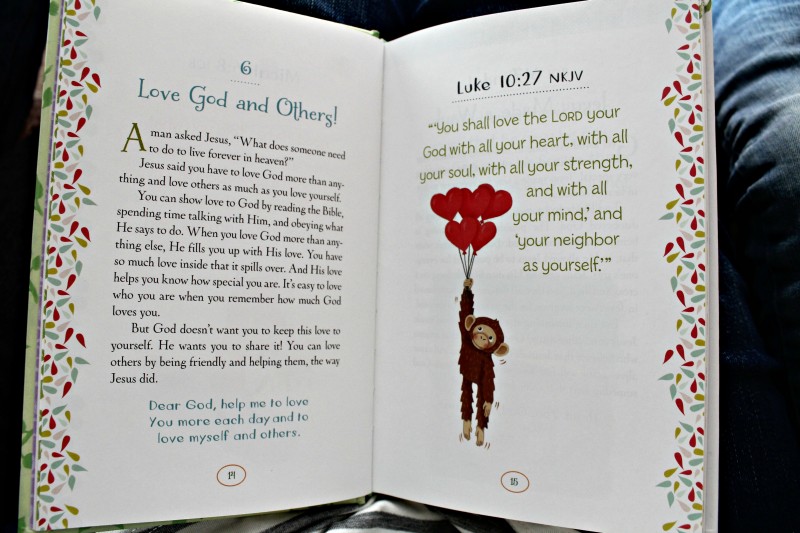 6
Love God and Others!
A man asked Jesus, “What does someone need
to do to live forever in heaven?”
Jesus said you have to love God more than any-
thing and love others as much as you love yourself.
You can show love to God by reading the Bible,
spending time talking with Him, and obeying what
He says to do. When you love God more than any-
thing else, He fills you up with His love. You have
so much love inside that it spills over. And His love
helps you know how special you are. It’s easy to love
who you are when you remember how much God
loves you.
But God doesn’t want you to keep this love to
yourself. He wants you to share it! You can love
others by being friendly and helping them, the way
Jesus did.
Dear God, help me to love
You more each day and to
love myself and others.
14
Luke 10:27 NKJV
“‘You shall love the LORD your
God with all your heart, with all
your soul, with all your strength,
and with all
your mind,’ and
‘your neighbor
as yourself.’”
15